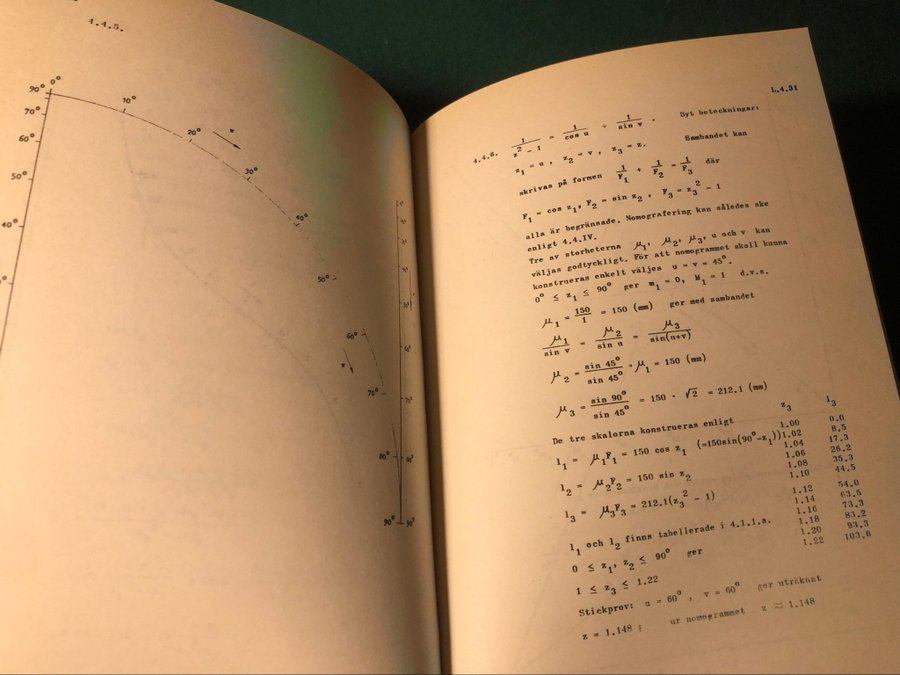 4.4.5.
90° 0°
70°
60°
50°
40°
10°
20°
30°
40°
50°
60°
70°
80°
90°
L.4.31
4.4.6. 1/(z² - 1) = 1/cos u + 1/sin v . Byt beteckningar:
z₁ = u, z₂ = v, z₃ = z. Sambandet kan
skrivas på formen 1/F₁ + 1/F₂ = 1/F₃ där
F₁ = cos z₁, F₂ = sin z₂, F₃ = z₃² - 1
alla är begränsade. Nomografering kan således ske
enligt 4.4.IV.
Tre av storheterna μ₁, μ₂, μ₃, u och v kan
väljas godtyckligt. För att nomogrammet skall kunna
konstrueras enkelt väljes u = v = 45°.
0° ≤ z₁ ≤ 90° ger m₁ = 0, M₁ = 1 d.v.s.
μ₁ = 150/1 = 150 (mm) ger med sambandet
μ₁/sin v = μ₂/sin u = μ₃/sin(u+v)
μ₂ = sin 45°/sin 45° · μ₁ = 150 (mm)
μ₃ = sin 90°/sin 45° = 150 · √2 = 212.1 (mm)
De tre skalorna konstrueras enligt
l₁ = μ₁F₁ = 150 cos z₁ (=150sin(90°-z₁))
l₂ = μ₂F₂ = 150 sin z₂
l₃ = μ₃F₃ = 212.1(z₃² - 1)
l₁ och l₂ finns tabellerade i 4.1.1.a.
0 ≤ z₁, z₂ ≤ 90° ger
1 ≤ z₃ ≤ 1.22
z₃ l₃
1.00 0.0
1.02 8.5
1.04 17.3
1.06 26.2
1.08 35.3
1.10 44.5
1.12 54.0
1.14 63.5
1.16 73.3
1.18 83.2
1.20 93.3
1.22 103.6
Stickprov: u = 60°, v = 60° ger uträknat
z = 1.148 ; ur nomogrammet z ≈ 1.148